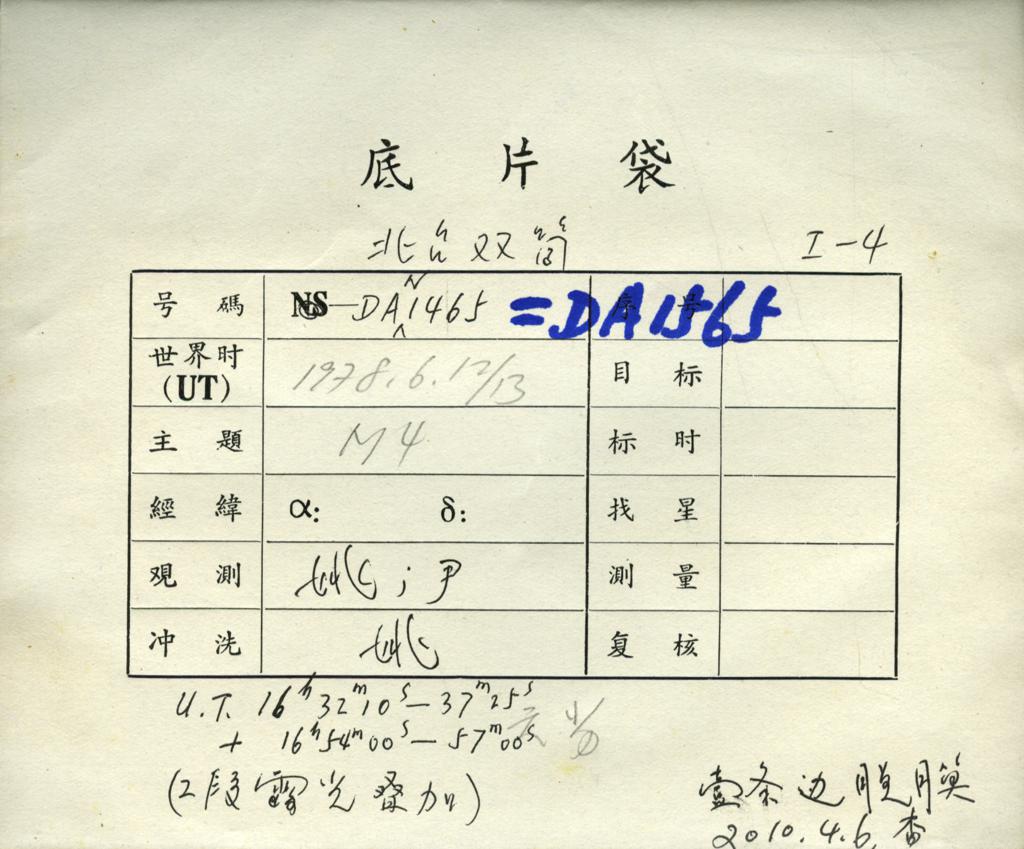 底 片 袋
北台双筒 I-4
号 碼 NS—DA1465 =DA1565 序 号
N
世界时 (UT) 1978.6.12/13 目 标
主 題 M4 标 时
經 緯 α: δ: 找 星
观 測 姚;尹 測 量
冲 洗 姚 复 核
U.T. 16h32m10s—37m25s
+ 16h54m00s—57m00s
(2段露光叠加) 壹条边脱膜
2010.4.6.